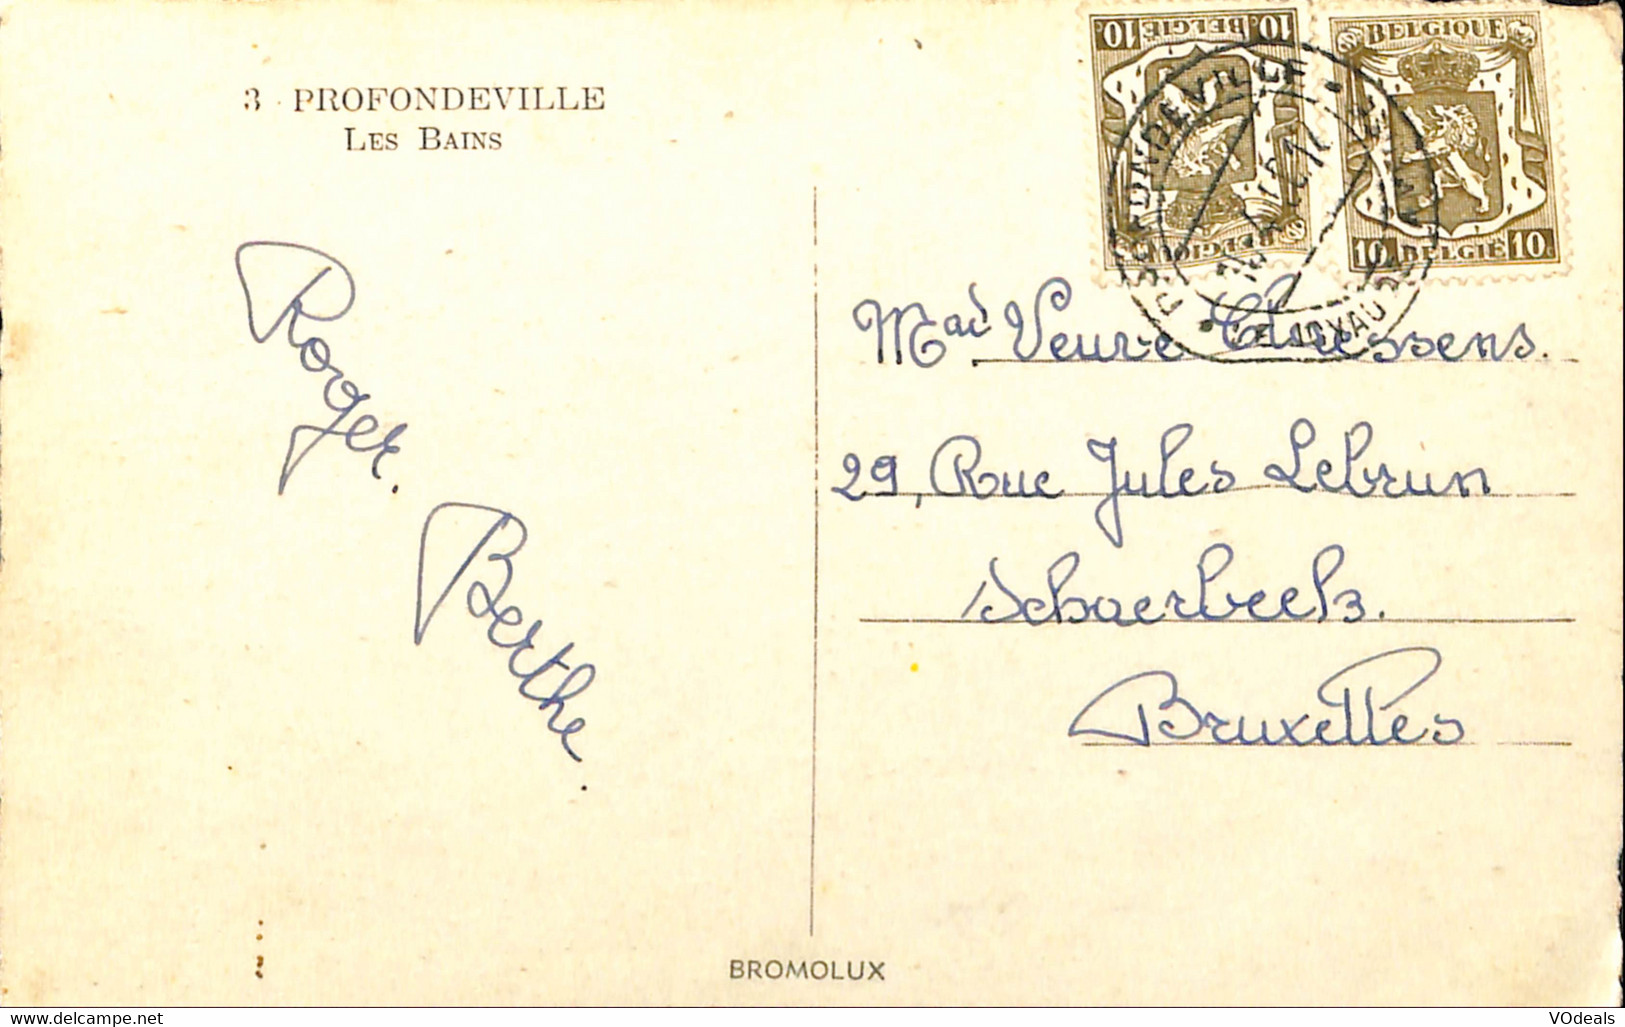 3 PROFONDEVILLE
LES BAINS
Roger.
Berthe.
BELGIE
10
10
BELGIQUE
BELGIQUE
10 BELGIË 10
PROFONDEVILLE
LE JOYAU DE LA MEUSE
Mad Veuve Claessens.
29, Rue Jules Lebrun
Schaerbeek.
Bruxelles
BROMOLUX
www.delcampe.net
VOdeals